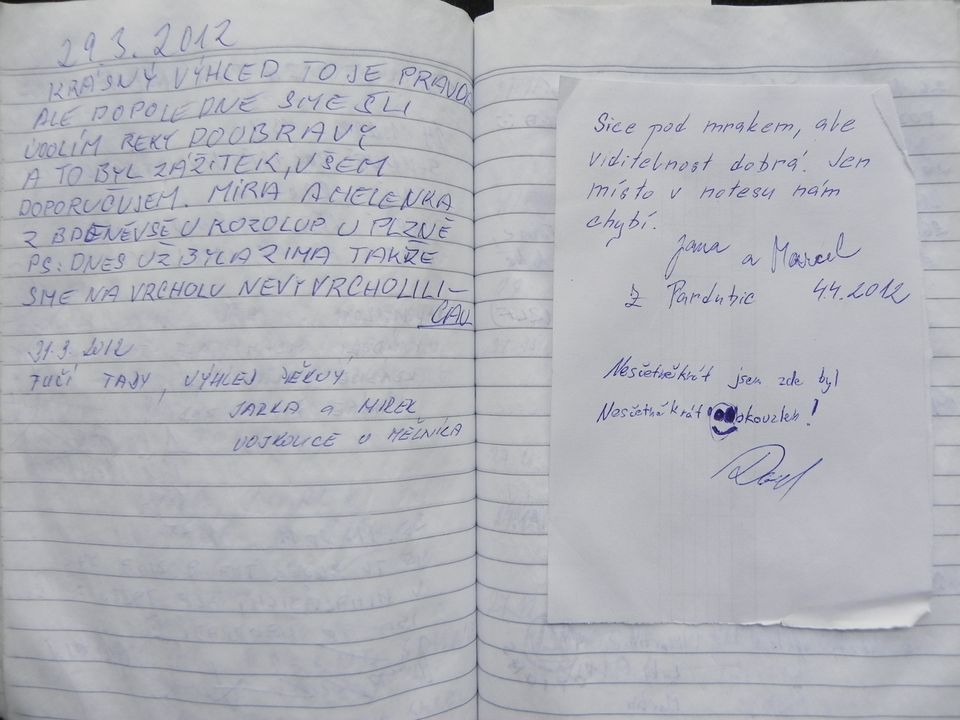 29.3.2012
KRÁSNÝ VÝHLED TO JE PRAVDA
ALE DOPOLEDNE SME ŠLI
ÚDOLÍM ŘEKY DOUBRAVY
A TO BYL ZÁŽITEK, VŠEM
DOPORUČUJEM. MÍRA A HELENKA
Z BDENĚVSE U KOZOLUP U PLZNĚ
PS: DNES UŽ BYLA ZIMA TAKŽE
SME NA VRCHOLU NEVYVRCHOLILI-
ČAU
31.3.2012
FUČÍ TADY, VÝHLEJ
JARKA a MIREK
VOJKOVICE U MĚLNÍKA
Sice pod mrakem, ale
viditelnost dobrá. Jen
místo v notesu nám
chybí.
Jana a Marcel
z Pardubic 4.4.2012
Nesčetněkrát jsem zde byl
Nesčetněkrát okouzlen!